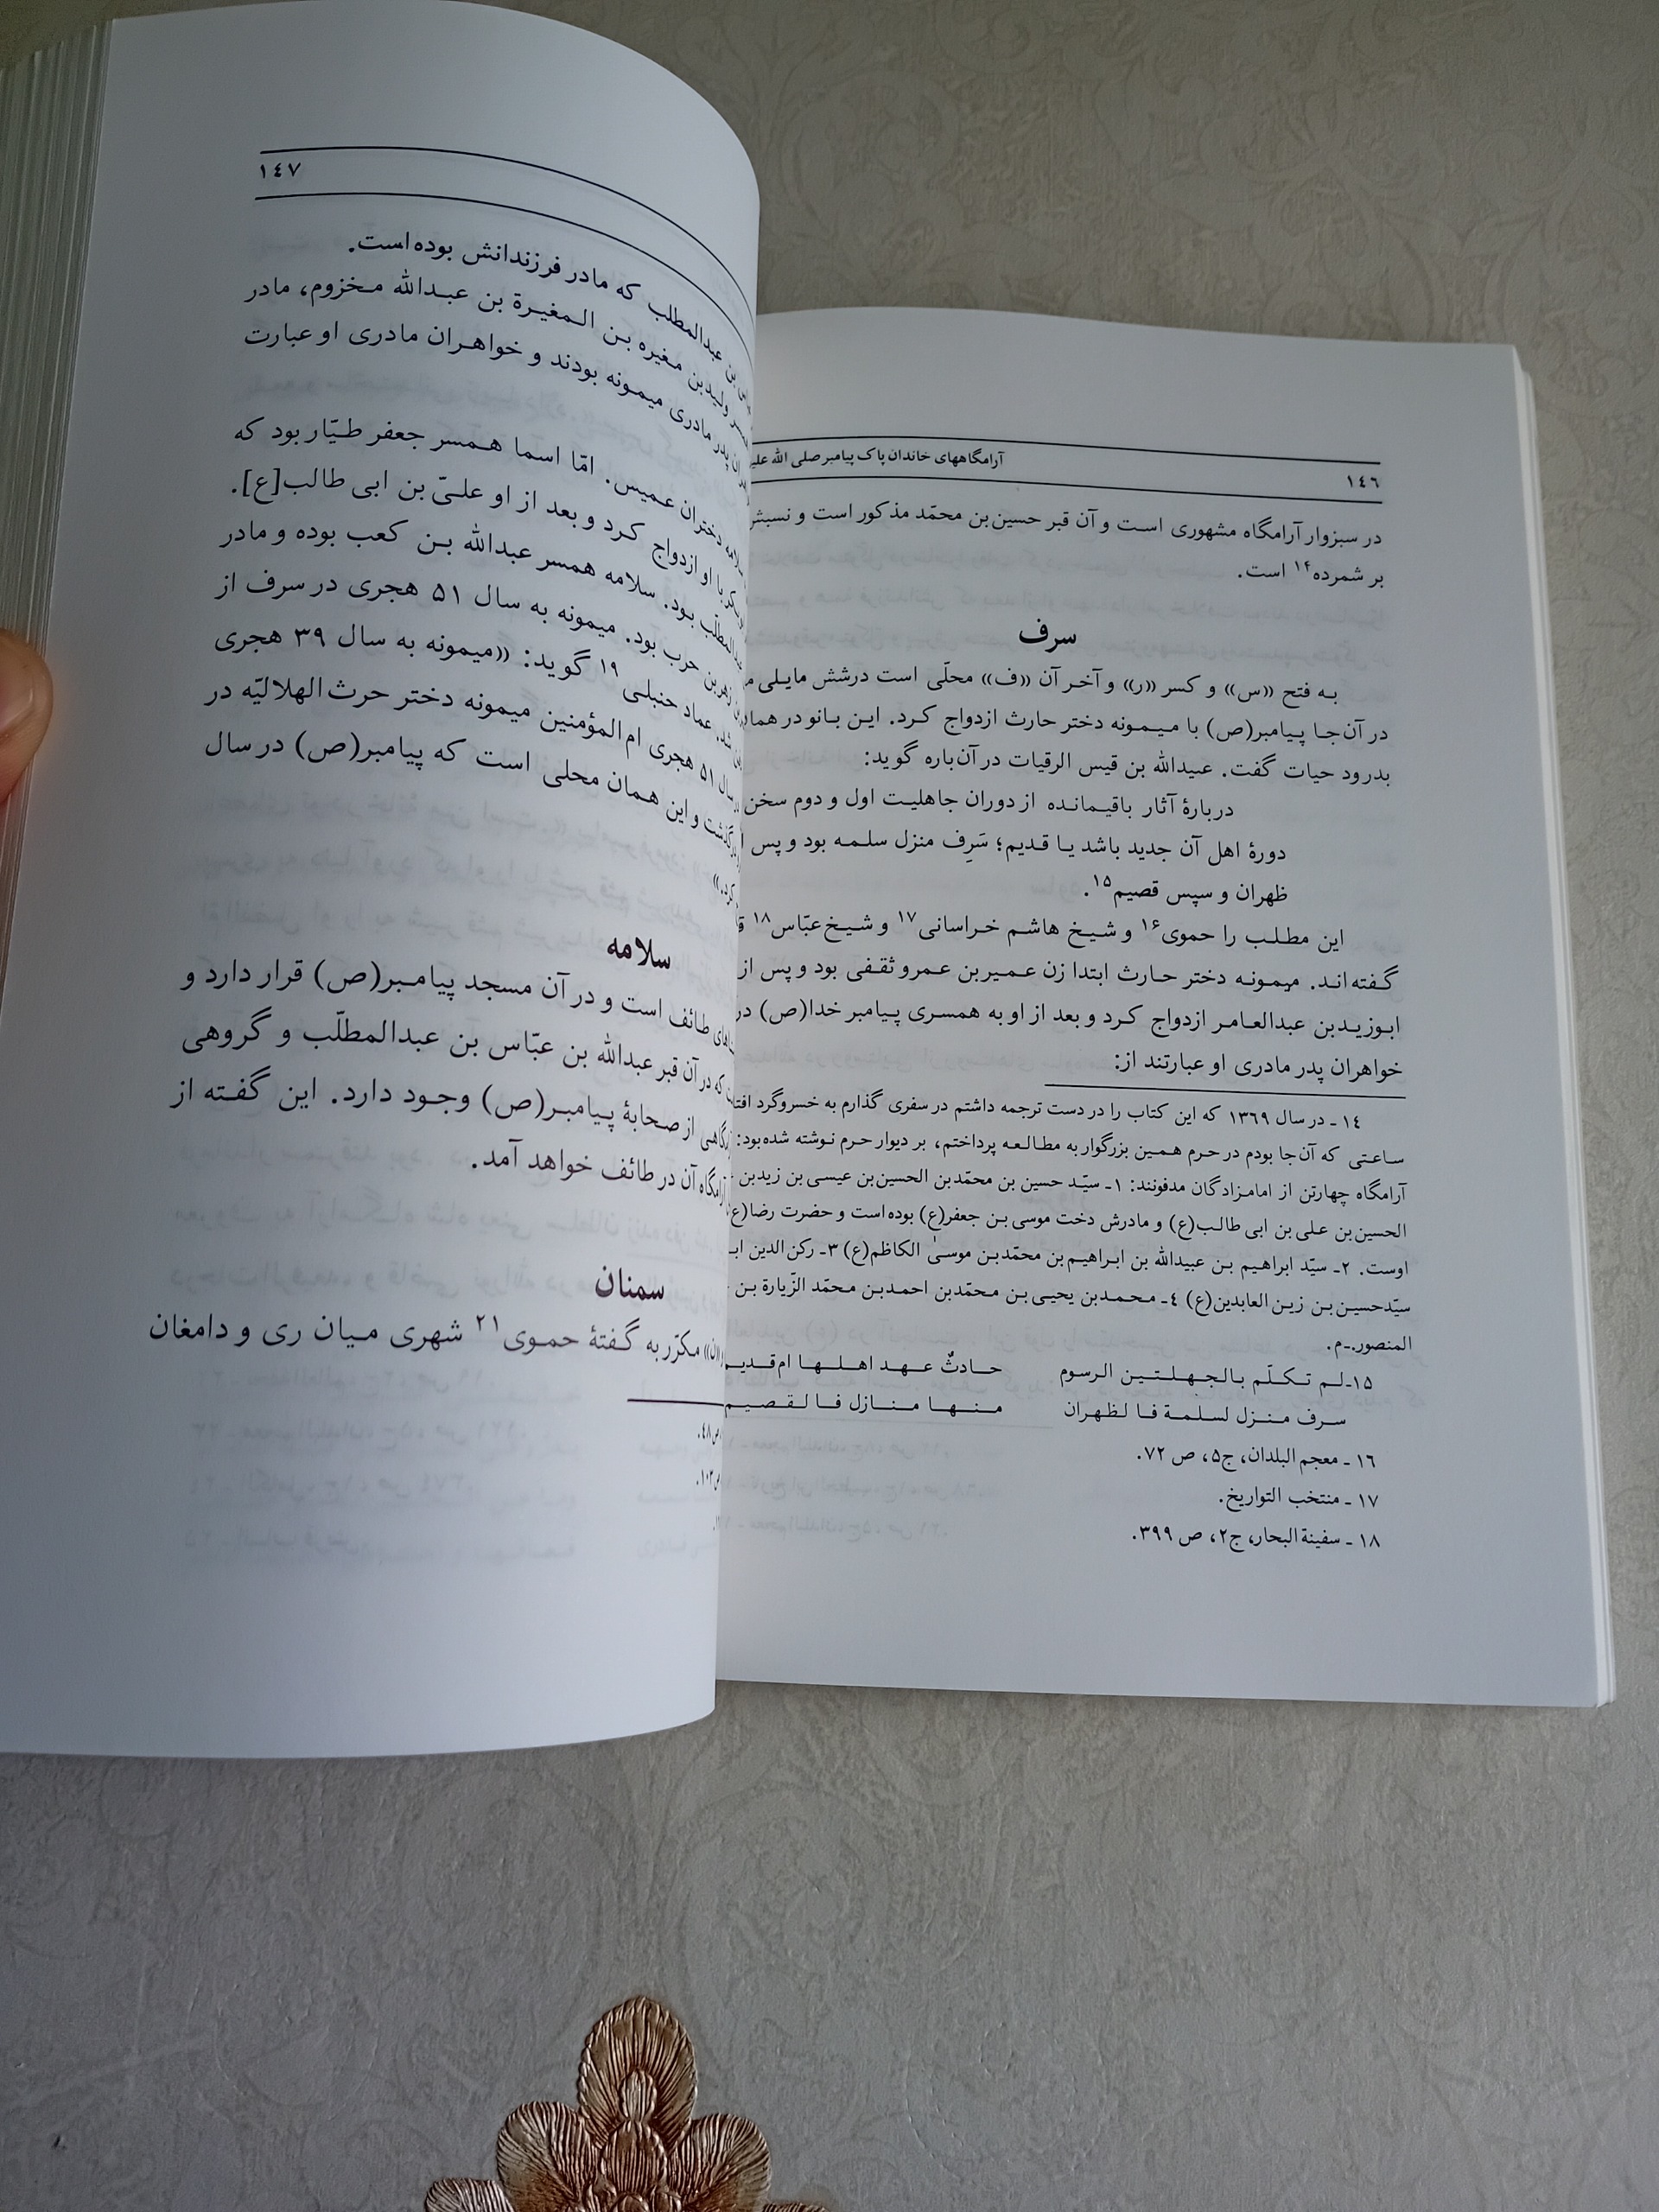 ١٤٦
آرامگاههای خاندان پاک پیامبر صلی الله علیه
در سبزوار آرامگاه مشهوری است و آن قبر حسین‌بن محمّد مذکور است و نسبش
بر شمرده۱۴ است.
سرف
به فتح «س» و کسر «ر» و آخر آن «ف» محلّی است درشش مایلی
در آن‌جا پیامبر(ص) با میمونه دختر حارث ازدواج کرد. این بانو در همان
بدرود حیات گفت. عبیدالله بن قیس الرقیات در آن‌باره گوید:
دربارهٔ آثار باقیمانده از دوران جاهلیت اول و دوم سخن
دورهٔ اهل آن جدید باشد یا قدیم؛ سَرِف منزل سلمه بود و پس
ظهران و سپس قصیم۱۵.
این مطلب را حموی۱۶ و شیخ هاشم خراسانی۱۷ و شیخ عبّاس۱۸
گفته‌اند. میمونه دختر حارث ابتدا زن عمیربن عمرو ثقفی بود و پس از
ابوزیدبن عبدالعامر ازدواج کرد و بعد از او به همسری پیامبر خدا(ص) در
خواهران پدر مادری او عبارتند از:
١٤ ـ در سال ١٣٦٩ که این کتاب را در دست ترجمه داشتم در سفری گذارم به خسروگرد افتاد
ساعتی که آن‌جا بودم در حرم همین بزرگوار به مطالعه پرداختم، بر دیوار حرم نوشته شده‌بود:
آرامگاه چهارتن از امامزادگان مدفونند: ١ـ سیّد حسین بن محمّدبن الحسین‌بن عیسی بن زیدبن
الحسین‌بن علی بن ابی طالب(ع) و مادرش دخت موسی بن جعفر(ع) بوده است و حضرت رضا(ع)
اوست. ٢ـ سیّد ابراهیم بن عبیدالله بن ابراهیم بن محمّدبن موسیٰ الکاظم(ع) ٣ـ رکن الدین
سیّدحسین‌بن زین العابدین(ع) ٤ـ محمدبن یحیی بن محمّدبن احمدبن محمّد الزّیارة بن
المنصور.ـم.
١٥ـلم تکلّم بالجهلتین الرسوم حادثٌ عهد اهلها ام‌قدیم
سرف منزل لسلمة فا لظهران منها منازل فا لقصیم
١٦ ـ معجم البلدان، ج٥، ص ٧٢.
١٧ ـ منتخب التواریخ.
١٨ ـ سفینة البحار، ج٢، ص ٣٩٩.
١٤٧
بن عبدالمطلب که مادر فرزندانش بوده‌است.
ولیدبن مغیره بن المغیرة بن عبدالله مخزوم، مادر
پدر مادری میمونه بودند و خواهران مادری او عبارت
سلامه دختران عمیس. امّا اسما همسر جعفر طیّار بود که
با او ازدواج کرد و بعد از او علیّ بن ابی طالب[ع].
بود. سلامه همسر عبدالله بن کعب بوده و مادر
زهیربن حرب بود. میمونه به سال ٥١ هجری در سرف از
شد. عماد حنبلی ١٩ گوید: «میمونه به سال ٣٩ هجری
سال ٥١ هجری ام المؤمنین میمونه دختر حرث الهلالیّه در
درگذشت و این همان محلی است که پیامبر(ص) در سال
کرد.»
سلامه
طائف است و در آن مسجد پیامبر(ص) قرار دارد و
که در آن قبر عبدالله بن عبّاس بن عبدالمطلّب و گروهی
از صحابهٔ پیامبر(ص) وجود دارد. این گفته از
آرامگاه آن در طائف خواهد آمد.
سمنان
«ن» مکرّر به گفتهٔ حموی٢١ شهری میان ری و دامغان
ص٤٨.
ص١٠٢.